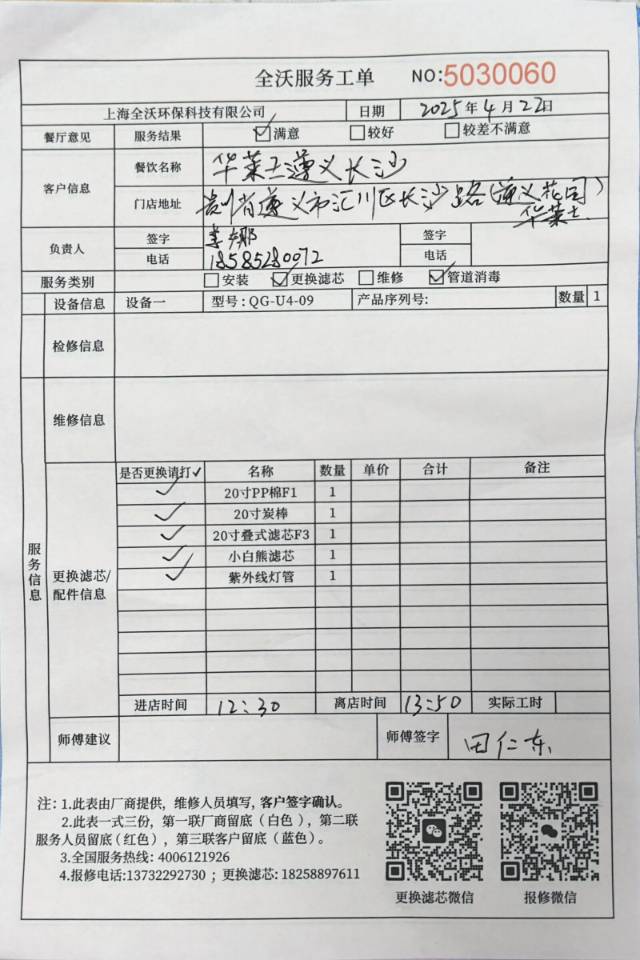 全沃服务工单 NO:5030060
上海全沃环保科技有限公司 日期 2025年4月22日
餐厅意见 服务结果 ☑满意 ☐较好 ☐较差不满意
客户信息 餐饮名称 华莱士遵义长沙
门店地址 贵州省遵义市汇川区长沙路(遵义花园)
华莱士
负责人 签字 李娜 签字
电话 18585280072 电话
服务类别 ☐安装 ☑更换滤芯 ☐维修 ☑管道消毒
设备信息 设备一 型号:QG-U4-09 产品序列号: 数量 1
检修信息
维修信息
服务信息
更换滤芯/配件信息
是否更换请打✓ 名称 数量 单价 合计 备注
✓ 20寸PP棉F1 1
✓ 20寸炭棒 1
✓ 20寸叠式滤芯F3 1
✓ 小白熊滤芯 1
✓ 紫外线灯管 1
进店时间 12:30 离店时间 13:50 实际工时
师傅建议 师傅签字 田仁东
注: 1.此表由厂商提供，维修人员填写, 客户签字确认。
2.此表一式三份，第一联厂商留底（白色），第二联
服务人员留底（红色），第三联客户留底（蓝色）。
3.全国服务热线: 4006121926
4.报修电话:13732292730 ; 更换滤芯: 18258897611
更换滤芯微信 报修微信